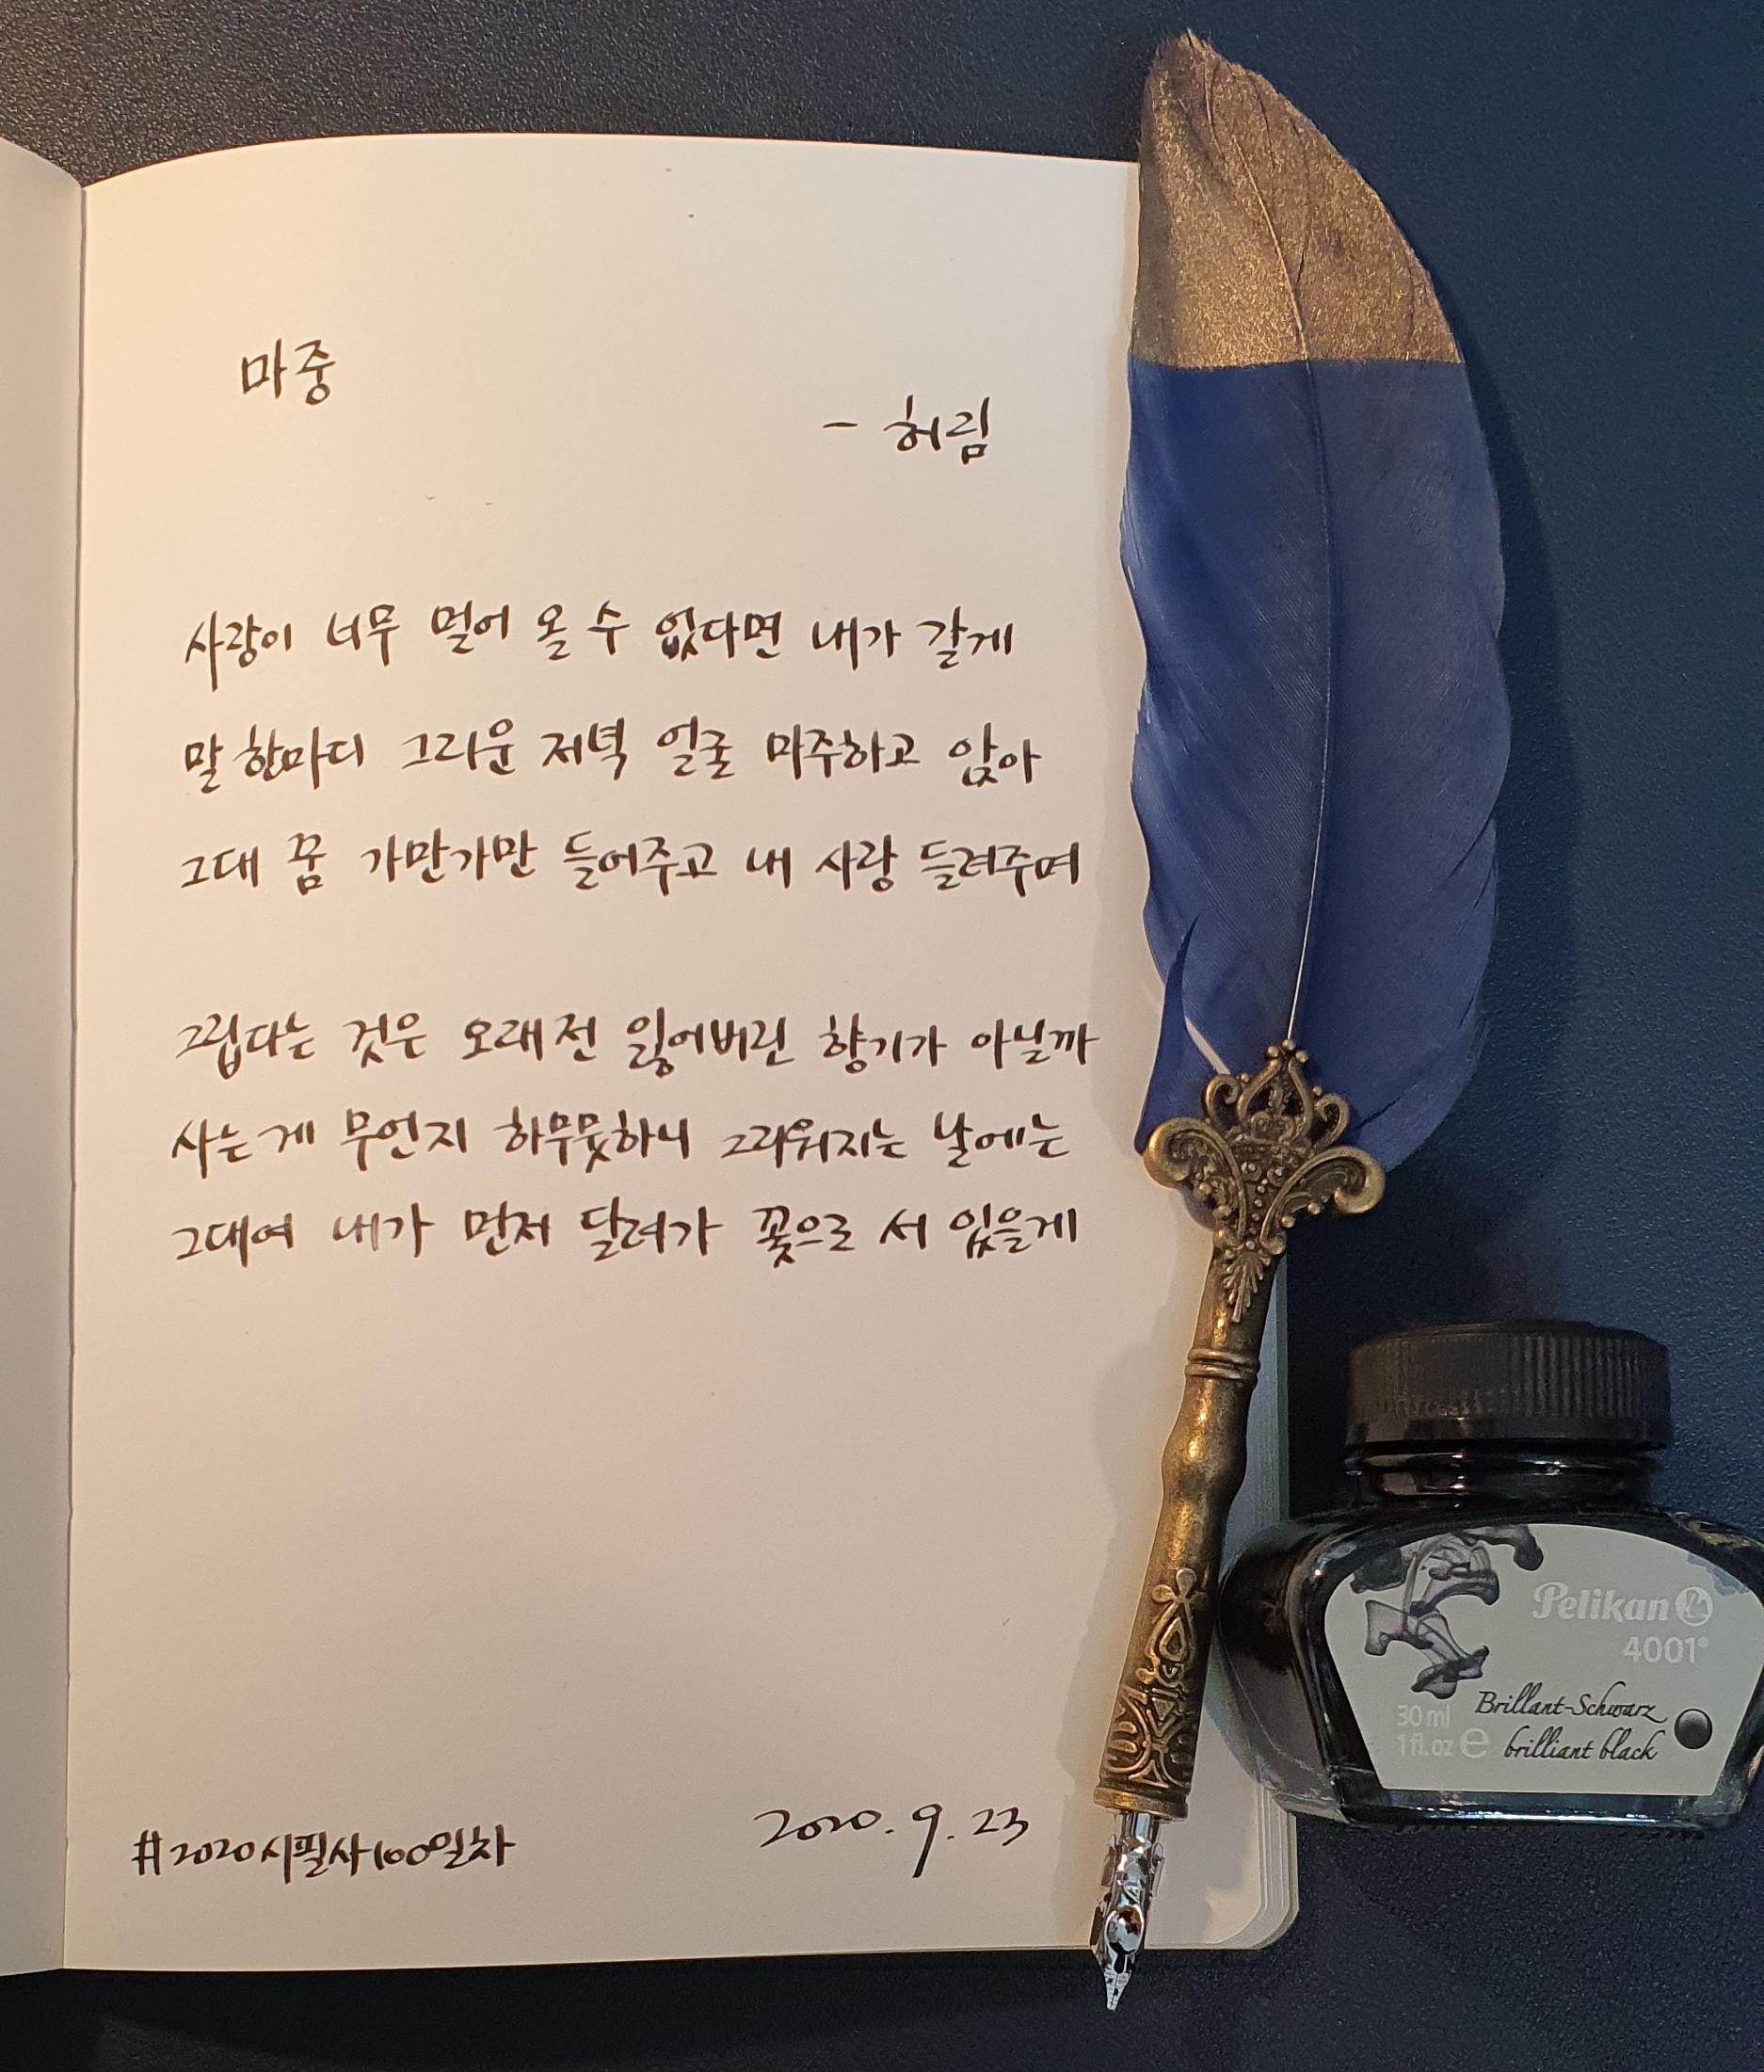 마중
- 허림
사랑이 너무 멀어 올 수 없다면 내가 갈게
말 한마디 그리운 저녁 얼굴 마주하고 앉아
그대 꿈 가만가만 들어주고 내 사랑 들려주며
그립다는 것은 오래전 잃어버린 향기가 아닐까
사는게 무언지 하무뭇하니 그리워지는 날에는
그대여 내가 먼저 달려가 꽃으로 서 있을게
#2020시필사100일차
2020. 9. 23
Pelikan
4001®
Brillant-Schwarz
30 ml
brilliant black
1 fl.oz e